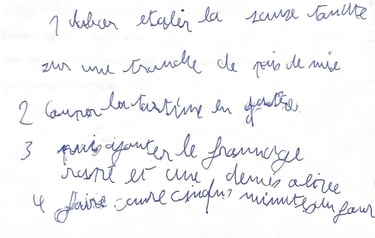 1 étaler la sause tomate
sur une tranche de pain de mie
2 Couper la tartine en quatre
3 puis ajouter le fromage
rapé et une demis olive
4 faire cuire cinque minutes au four